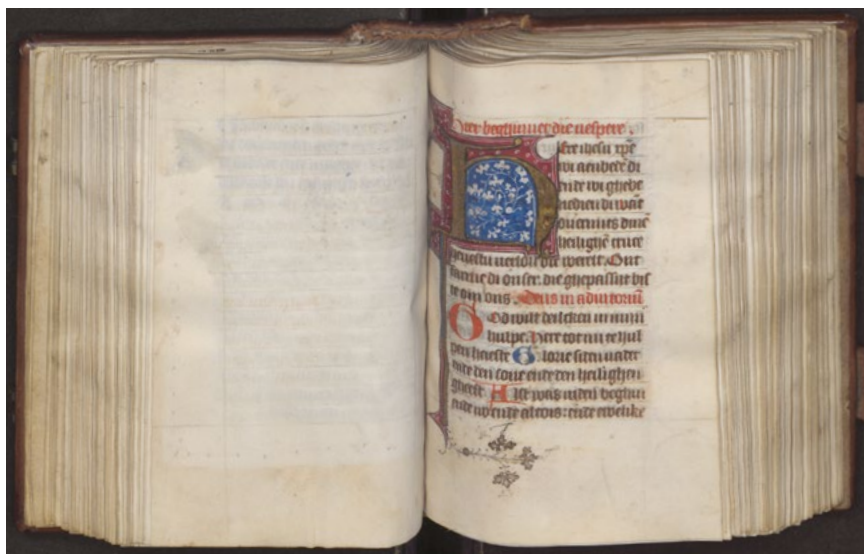 Hier beghint die vespere.
here ihesu xpe
wi aenbeden di
ende wi ghebe
nedien di want
du ermits dine
heilighe cruce
die werelt. Ont
di onser. die ghepassiit bis
te om ons. Deus in adiutorium
God wilt dencken in mijn
hulpe. Here tot mi te hul
pen heieste Glorie si den vader
ende den sone ende den heilighen
gheest Alst was inden beghin
ende nv ende altoos: ende ewelike